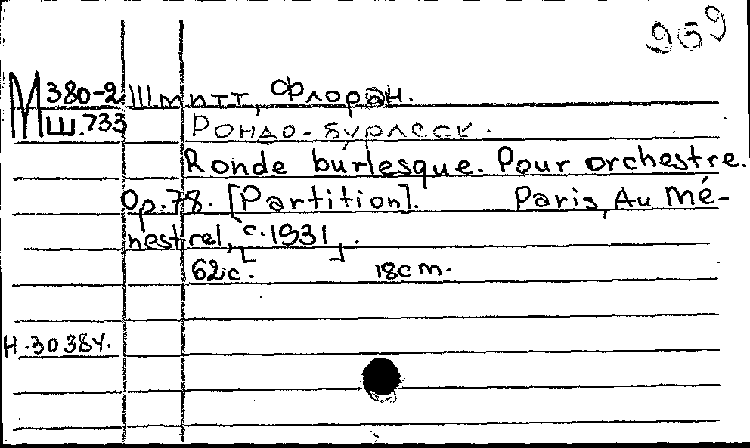 959
М 380-2 Шмитт, Флоран.
Ш.733 Рондо-бурлеск.
Ronde burlesque. Pour orchestre.
Op. 78. [Partition]. Paris, Au Mé-
nestrel, [c. 1931].
62 с. 18 cm.
Н. 30384.